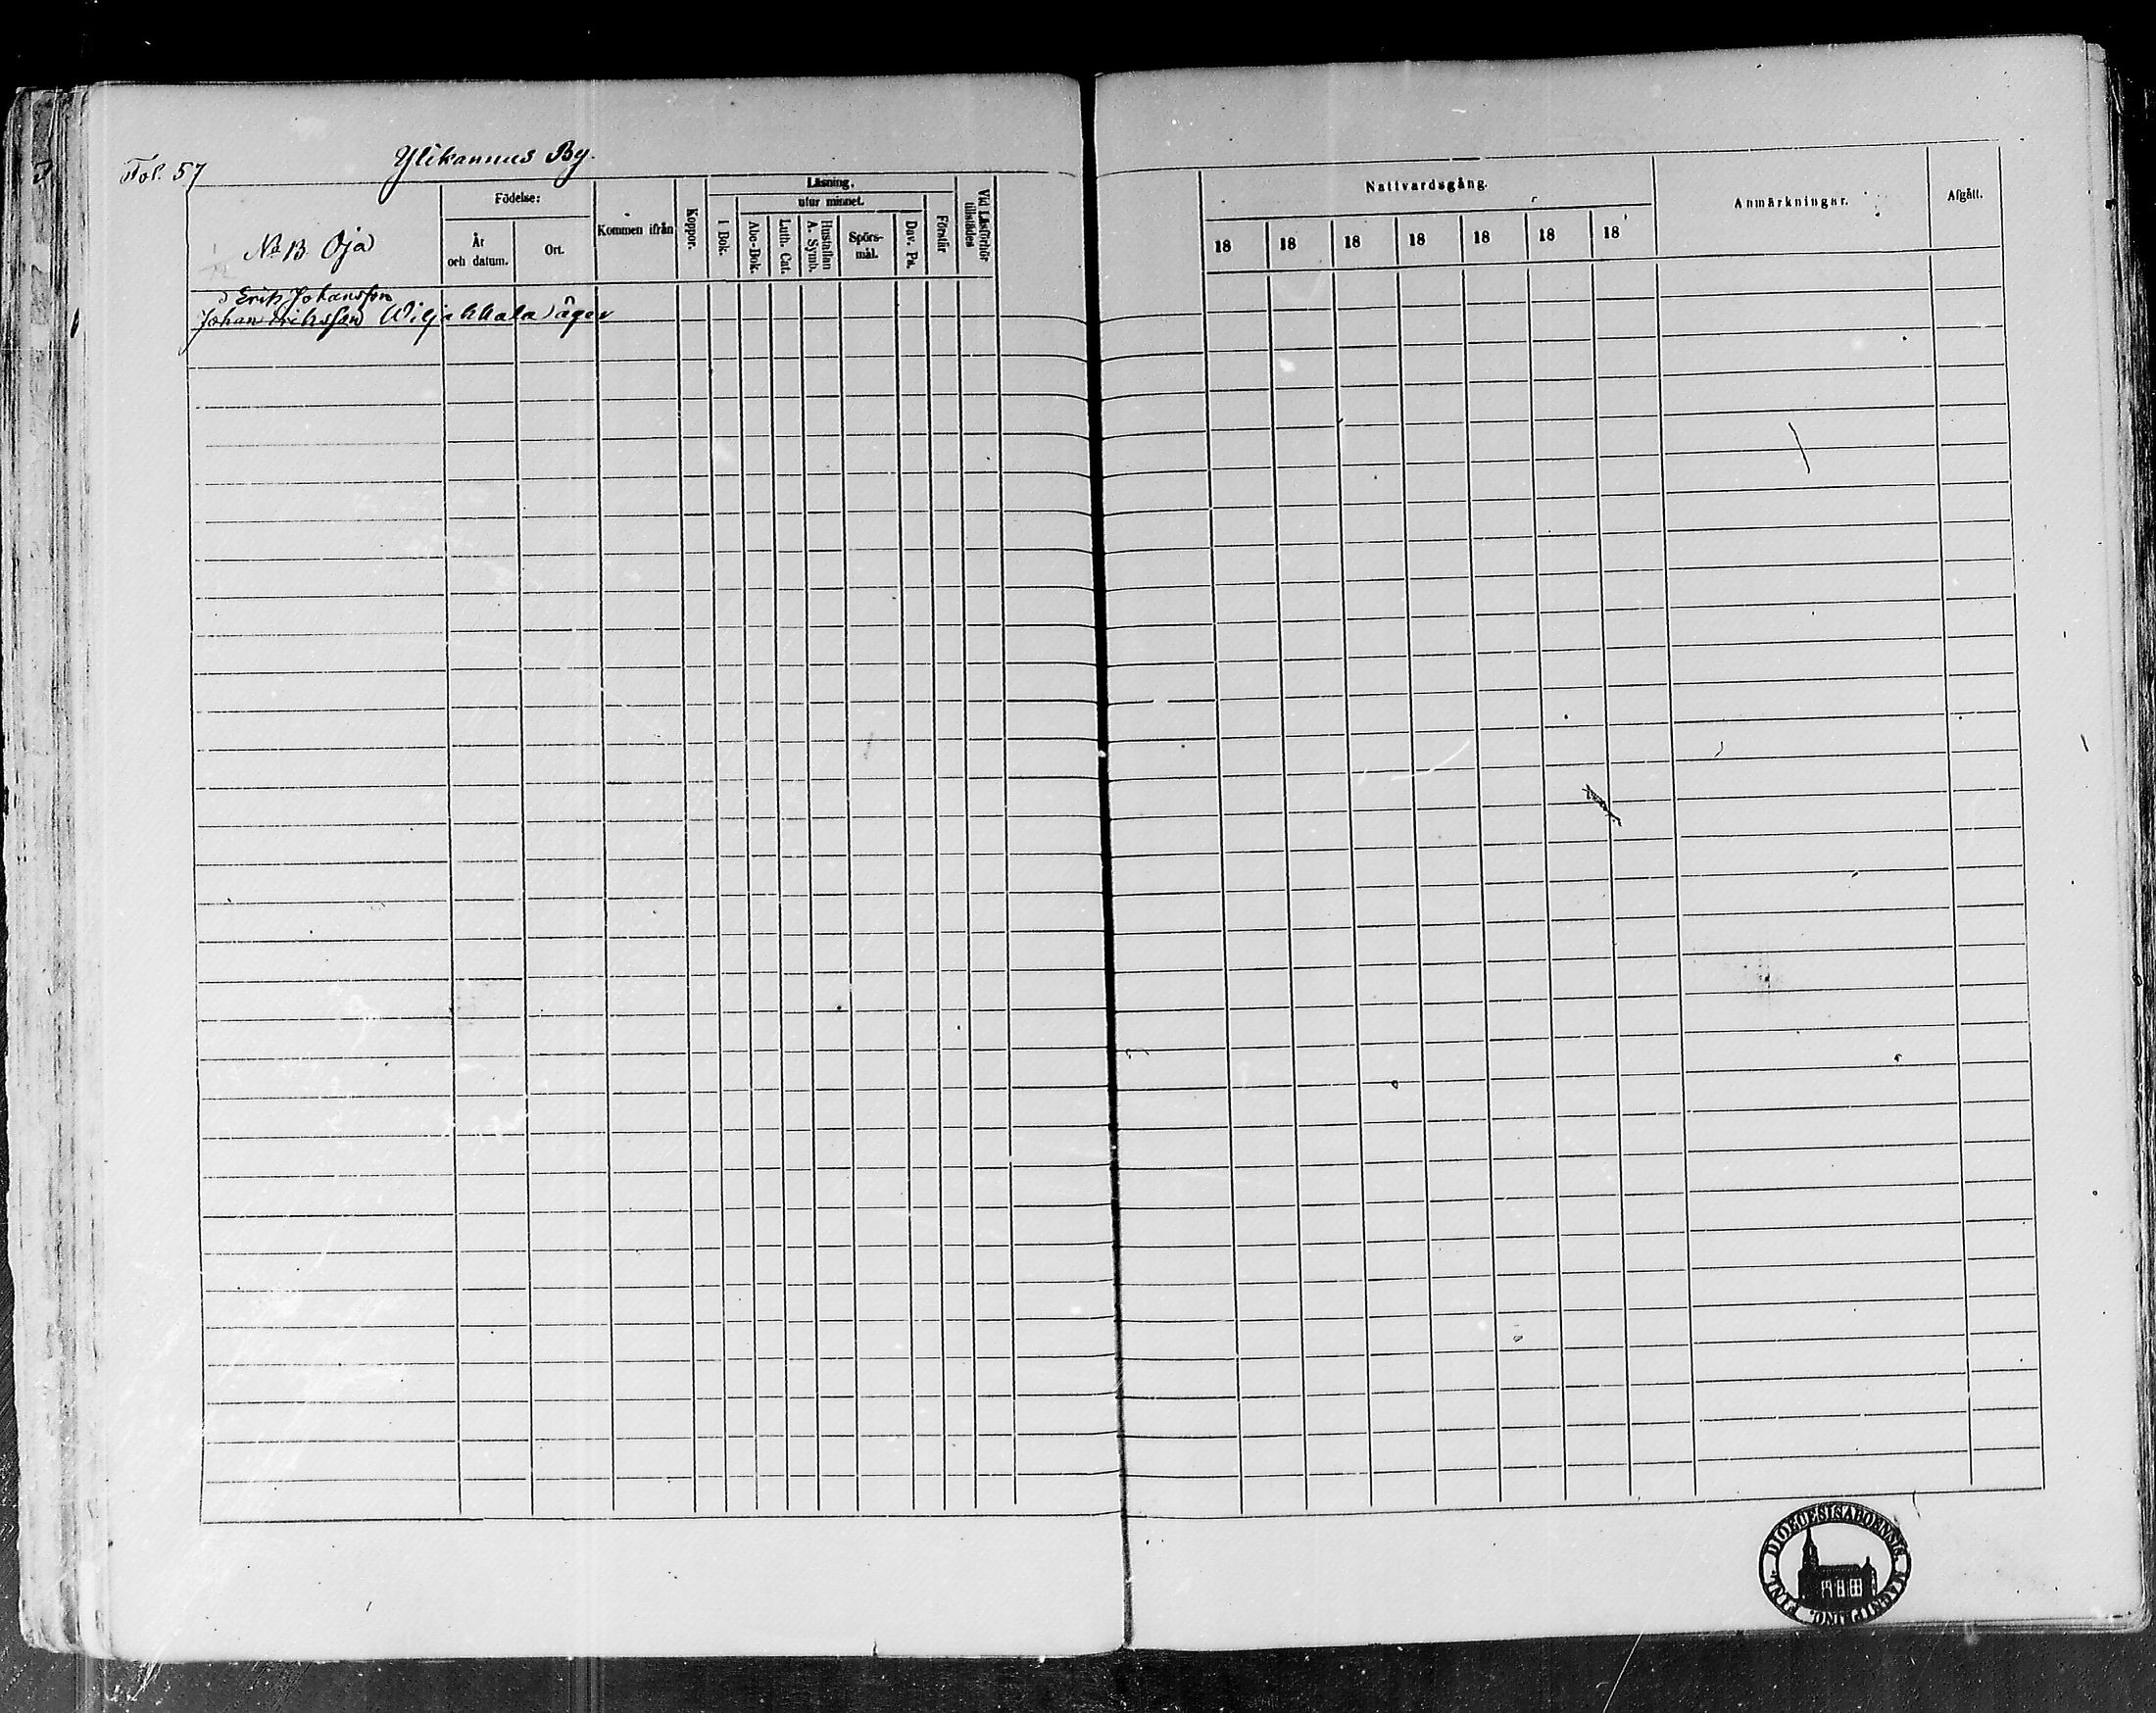 Fol. 57
Ylikannus By.
No 13. Oja
Födelse:
År och datum.
Ort.
Kommen ifrån
Koppor.
Läsning,
utur minnet.
I Bok.
Abc-Bok.
Luth. Cat.
Hustaflan A. Symb.
Spörs-
mål.
Dav. Ps.
Förstår
Vid Läsförhör tillstädes
Nattvardsgång.
18 18 18 18 18 18 18
Anmärkningar.
Afgått.
Erik Johansson
Johan Eriksson Wiljakkala äger
DIOECESIS ABOENSIS MAGNI PRINC. FINL.